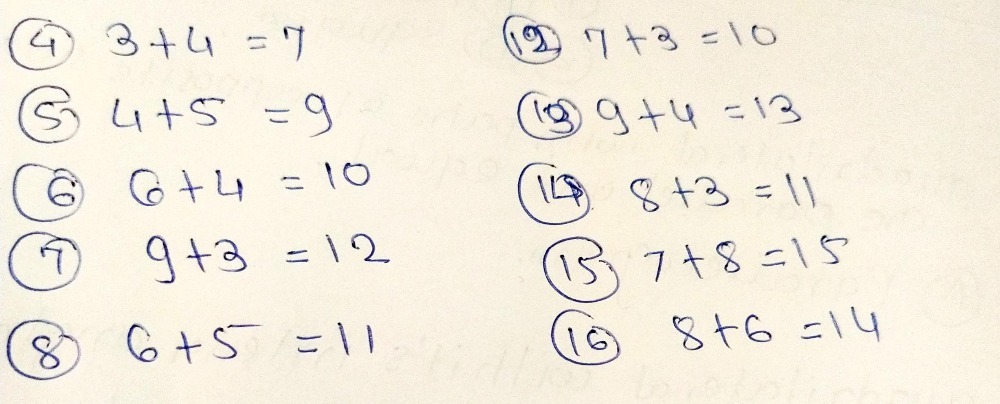 ④ 3+4 = 7
⑤ 4+5 = 9
⑥ 6+4 = 10
⑦ 9+3 = 12
⑧ 6+5 = 11
⑫ 7+3 = 10
⑬ 9+4 = 13
⑭ 8+3 = 11
⑮ 7+8 = 15
⑯ 8+6 = 14